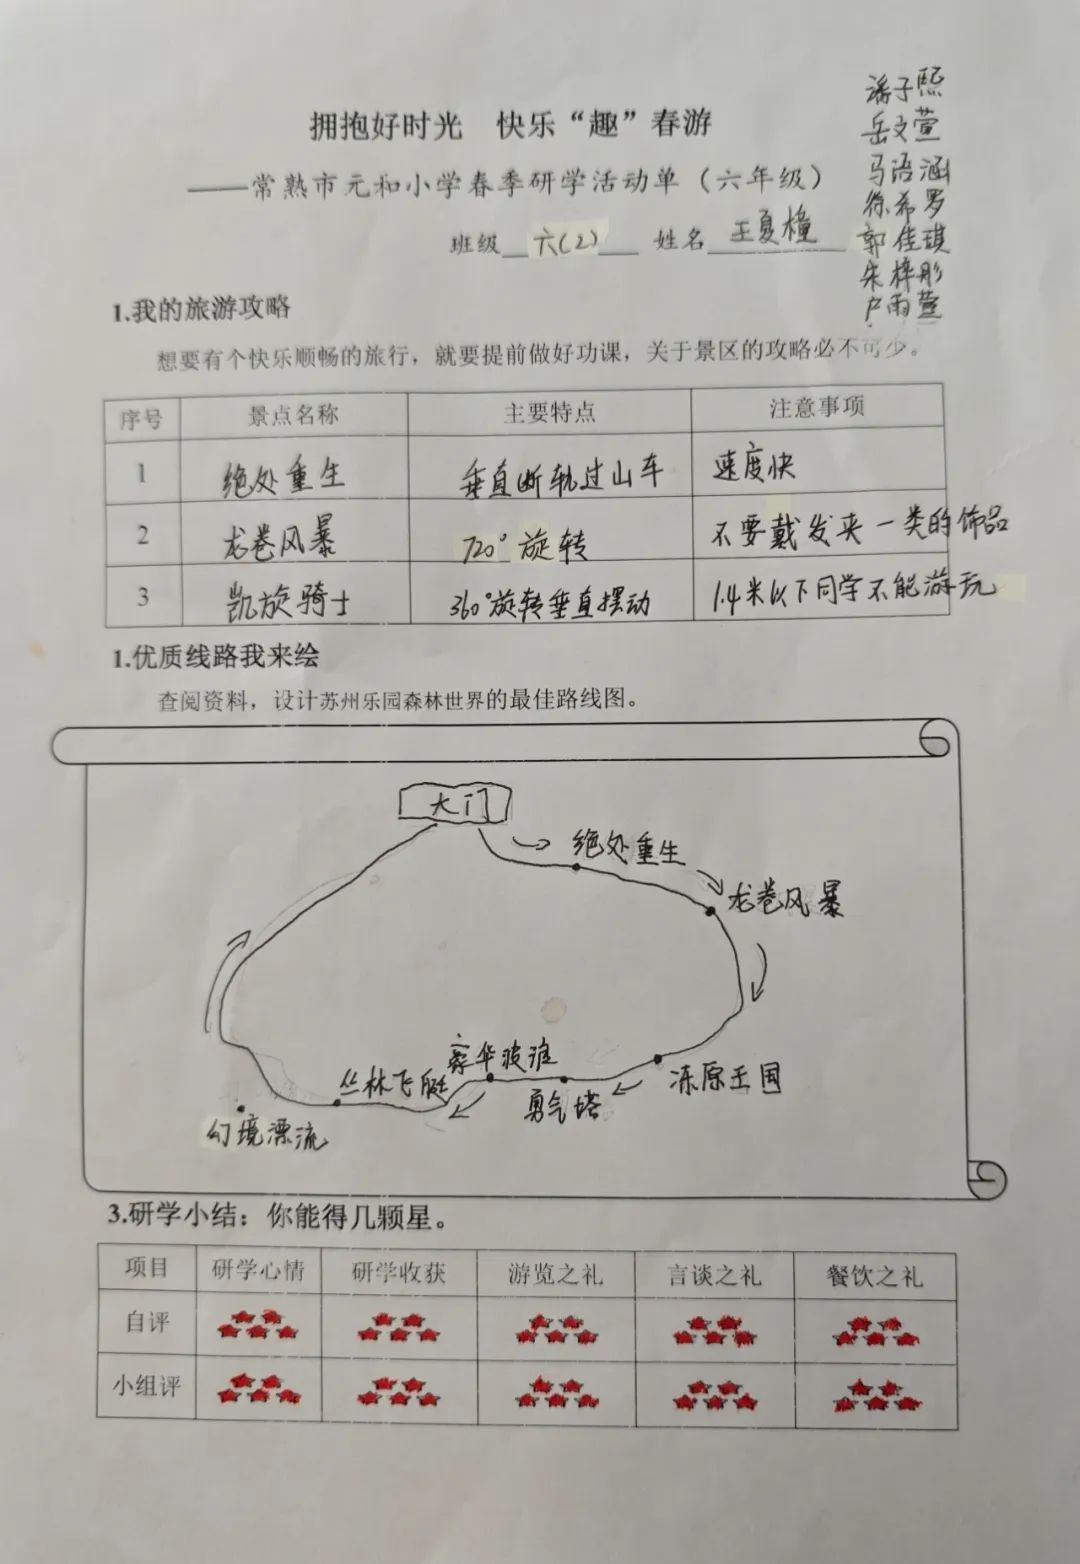 潘子熙
岳文萱
马语涵
徐希罗
郭佳琪
朱梓彤
卢雨萱
拥抱好时光 快乐“趣”春游
——常熟市元和小学春季研学活动单（六年级）
班级 六(2) 姓名 王夏橦
1.我的旅游攻略
想要有个快乐顺畅的旅行，就要提前做好功课，关于景区的攻略必不可少。
序号 景点名称 主要特点 注意事项
1 绝处重生 垂直断轨过山车 速度快
2 龙卷风暴 720°旋转 不要戴发夹一类的饰品
3 凯旋骑士 360°旋转垂直摆动 1.4米以下同学不能游玩
1.优质线路我来绘
查阅资料，设计苏州乐园森林世界的最佳路线图。
大门
绝处重生
龙卷风暴
冻原王国
勇气塔
豪华波浪
丛林飞艇
幻境漂流
3.研学小结：你能得几颗星。
项目 研学心情 研学收获 游览之礼 言谈之礼 餐饮之礼
自评
小组评